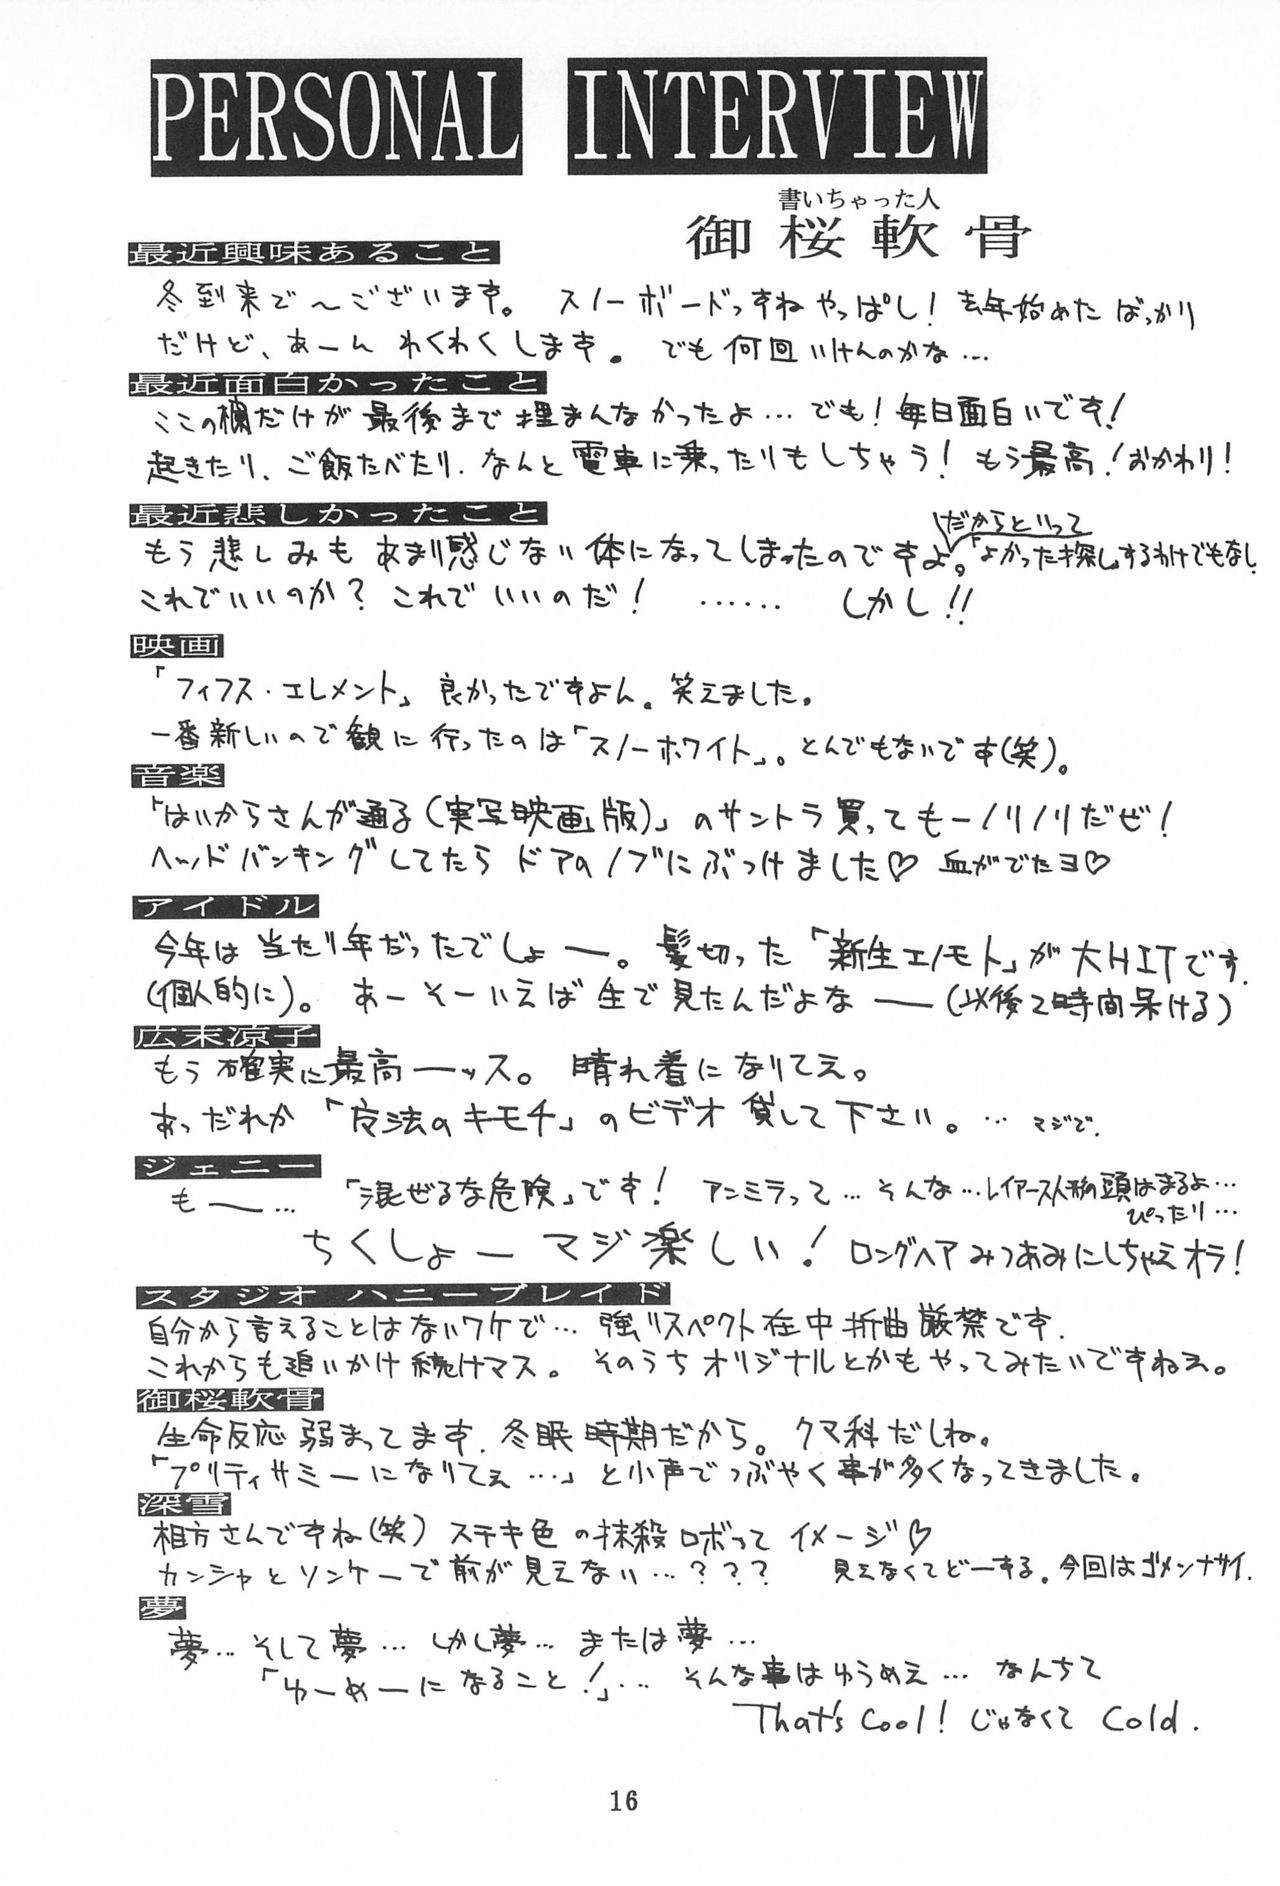 PERSONAL INTERVIEW
書いちゃった人
御桜軟骨
最近興味あること
冬到来で〜ございます。スノーボードっすねやっぱし！去年始めたばっかり
だけど、あーんわくわくします。でも何回いけんのかな…
最近面白かったこと
ここの欄だけが最後まで埋まんなかったよ…でも！毎日面白いです！
起きたり、ご飯たべたり、なんと電車に乗ったりもしちゃう！もう最高！おかわり！
最近悲しかったこと
だからといって
もう悲しみもあまり感じない体になってしまったのですよ。「よかった探し」するわけでもなし
これでいいのか？これでいいのだ！……しかし!!
映画
「フィフス・エレメント」良かったですよん。笑えました。
一番新しいので観に行ったのは「スノーホワイト」。とんでもないです(笑)。
音楽
「はいからさんが通る(実写映画版)」のサントラ買ってもーノリノリだぜ！
ヘッドバンキングしてたらドアのノブにぶつけました♡ 血がでたヨ♡
アイドル
今年は当たり年だったでしょー。髪切った「新生エノモト」が大HITです。
(個人的に)。あーそーいえば生で見たんだよなー(以後2時間呆ける)
広末涼子
もう確実に最高ーッス。晴れ着になりてえ。
あっだれか「のキモチ」のビデオ貸して下さい。…マジで。
ジェニー
もー…「混ぜるな危険」です！アンミラって…そんな…レイアース人形の頭はまるよ…
ぴったり…
ちくしょーマジ楽しい！ロングヘアみつあみにしちゃえオラ！
スタジオ ハニーブレイド
自分から言えることはないワケで…強リスペクト在中折曲厳禁です。
これからも追いかけ続けマス。そのうちオリジナルとかもやってみたいですねえ。
御桜軟骨
生命反応弱まってます。冬眠時期だから。クマ科だしね。
「プリティサミーになりてぇ…」と小声でつぶやく事が多くなってきました。
深雪
相方さんですね(笑) ステキ色の抹殺ロボってイメージ♡
カンシャとソンケーで前が見えない…？？？ 見えなくてどーする。今回はゴメンナサイ.
夢
夢…そして夢…しかし夢…または夢…
「ゆーめーになること！」…そんな事はゆうめえ…なんちて
That's cool! じゃなくて cold.
16